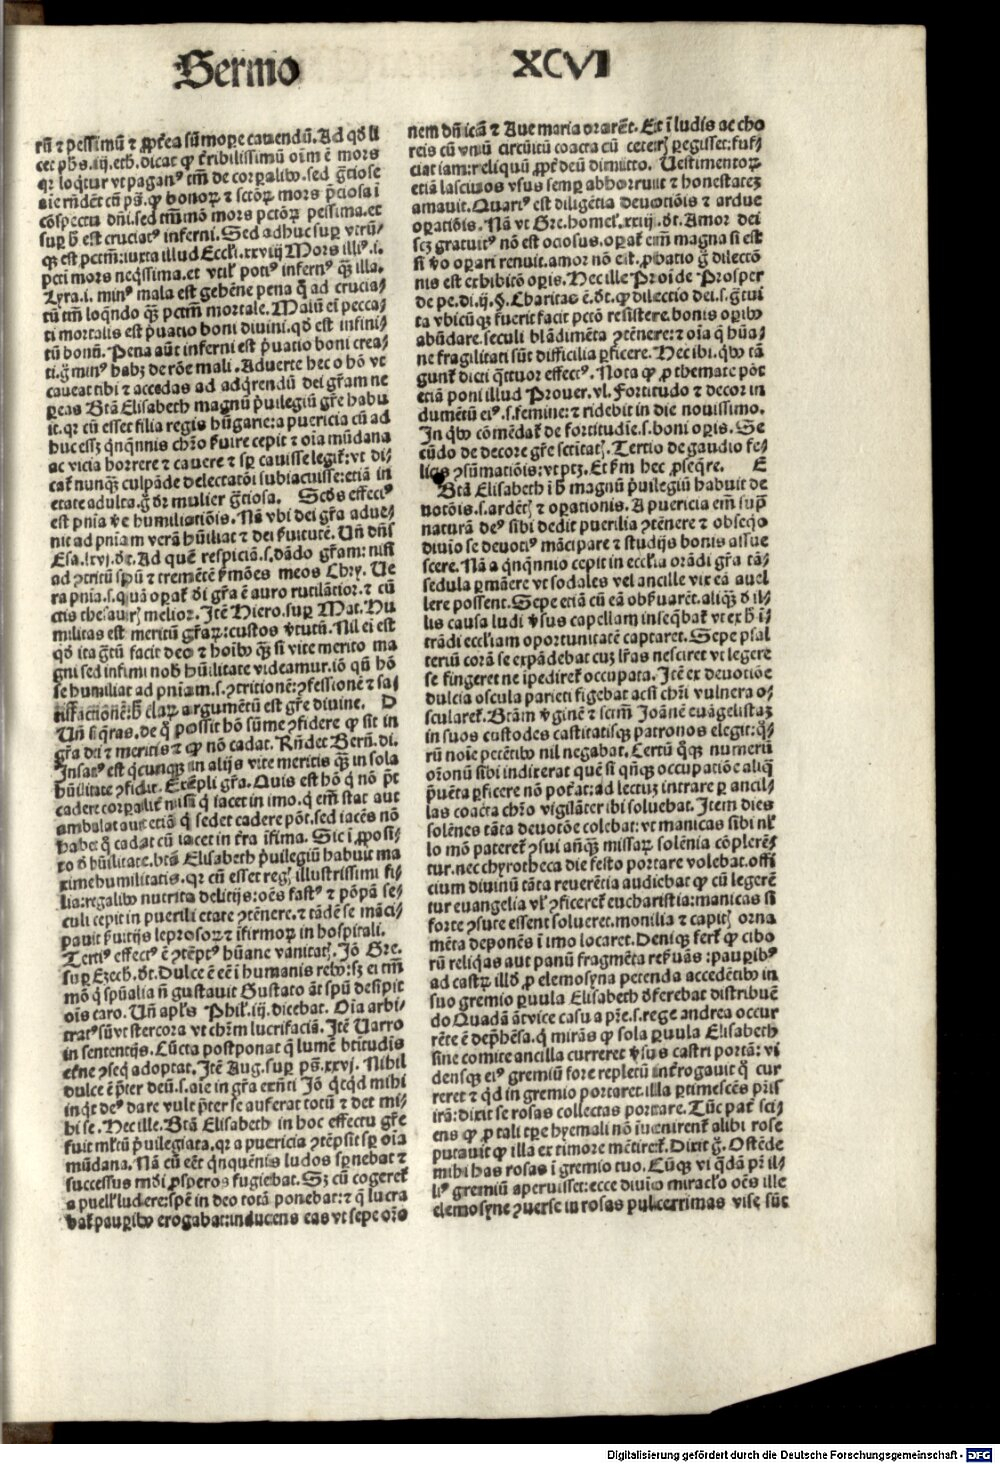 Sermo XCVI
rū ⁊ pessimū ⁊ ꝓpt̄ea sūmope cauendū. Ad qd̄ li
cet phs̄. iij. eth. dicat ꝙ t̄ribilissimū oīm ē mors
qꝛ loqͥtur vt paganꝰ tm̄ de corpaliꝰ. sed gͣtiose
aīe rn̄det cū ps̄. ꝙ bonoꝝ ⁊ sctōꝝ mors p̄ciosa ī
cōspectu dn̄i. sed tm̄mō mors pctōꝝ pessima. et
sup b̄ est cruciatꝰ inferni. Sed adhuc sup vtrū
qꝫ est pctm̄: iuxta illud Eccli. xxviij Mors illiꝰ. i.
pcti mors neqͥssima. et vtilꝰ potiꝰ infernꝰ qͣꝫ illa.
Lyra. i. minꝰ mala est gehēne pena qͣ ad crucia⸗
tū tm̄ loqndo qͣꝫ pctm̄ mortale. Maiū ei pecca⸗
ti mortalis est p̄uatio boni diuini. qd̄ est infini⸗
tū bonū. Pena aūt inferni est p̄uatio boni crea⸗
ti. gͦ minꝰ habꝫ de rōe mali. Aduerte hec o hō vt
caueat tibi ⁊ accedas ad adqͥrendū dei gr̄am ne
peas Btā Elisabeth magnū p̄uilegiū gr̄e habu
it. qꝛ cū esset filia regis hūgarie: a puericia cū ad
huc essꝫ qͥnqͥnnis chr̄o s̄uire cepit ⁊ oīa mūdana
ac vicia horrere ⁊ cauere ⁊ sp cauisse legit̄: vt di⸗
cat̄ nunqͣꝫ culpāde delectatōi subiacuisse: etiā in
etate adulta. gͦ dr̄ mulier gͣtiosa. Scds̄ effectꝰ
est pn̄ia v̄e humiliatiōis. Nā vbi dei gr̄a adue⸗
nit ad pn̄iam verā hūiliat ⁊ dei s̄uitutē. Un̄ dn̄s
Esa. lxvi. dt̄. Ad quē respiciā. s. dādo gr̄am: nisi
ad ꝯtritū spū ⁊ tremētē s̄mōes meos Chry. Ve
ra pn̄ia. s. quā opat̄ di gr̄a ē auro rutilātior. ⁊ cū
ctis thesauris melior. Itē Hiero. sup Mat. Hu
militas est meritū gr̄aꝝ: custos v̄tutū. Nil ei est
qd̄ ita gͣtū facit deo ⁊ hoīꝰ qͣꝫ si vite merito ma
gni sed infimi nob̄ hūilitate videamur. iō qn̄ hō
se humiliat ad pn̄iam. s. ꝯtritionē: ꝯfessionē ⁊ sa⸗
tiffactionē: b̄ elaꝝ argumētū est gr̄e diuine. D
Un̄ si qͥras. de qͦ possit hō sūme ꝯfidere ꝙ sit in
gr̄a dei ⁊ meritis ⁊ ꝙ nō cadat. Rn̄det Bern̄. di.
Insanꝰ est qͥcunqꝫ in alijs vite meritis qͣꝫ in sola
hūilitate ꝯfidit. Exēpli gr̄a. Quis est hō qͥ nō pt̄
cadere corpalit̄ nisi qͥ iacet in imo. qꝛ em̄ stat aut
ambulat aut etiā qͥ sedet cadere pōt. sed iacēs nō
habet qͦ cadat cū iacet in t̄ra īfima. Sic ī ꝓposi⸗
to d̄ hūilitate. btā Elisabeth p̄uilegiū habuit ma
xime humilitatis. qꝛ cū esset regꝭ illustrissimi fi⸗
lia: regaliꝰ nutrita delitijs: oēs fastꝰ ⁊ pōpā se⸗
culi cepit in puerili etate ꝯtēnere. ⁊ tādē se māci⸗
pauit s̄uitijs leprosoꝝ ⁊ īfirmoꝝ in hospitali.
Tertiꝰ effectꝰ ē ꝯtēptꝰ hūane vanitatꝭ. Jō Gre.
sup Ezech. dt̄. Dulce ē eē ī humanis rebꝰ: sꝫ ei tm̄
mō qͥ spūalia n̄ gustauit Gustato āt spū desipit
oīs caro. Un̄ apl̄s Phil. iij. dicebat. Oīa arbi⸗
tratꝰ sū vt stercora vt chm̄ lucrifaciā. Itē Uarro
in sententijs. Cūcta postponat qͥ lumē btitudis
et̄ne ꝯseqͥ adoptat. Itē Aug. sup ps̄. xxvj. Nihil
dulce ē p̄ter deū. s. aīe in gr̄a exn̄ti Jō qͥcqͥd mihi
inqͥt deꝰ dare vult p̄ter se auferat totū ⁊ det mi⸗
hi se. Hec ille. Btā Elisabeth in hoc effectu gr̄e
fuit ml̄tū p̄uilegiata. qꝛ a puericia ꝯtēpsit sp oīa
mūdana. Nā cū eēt qͥnquēnis ludos spnebat ⁊
successus mūdi ꝓsperos fugiebat. Sꝫ cū cogeret̄
a puell̄ ludere: spē in deo totā ponebat: ⁊ qͥ lucra
bat̄ paupibꝰ erogabat: inducens eas vt sepe orō
nem dn̄icā ⁊ Aue maria orarēt. Et ī ludis ac cho
reis cū vnū circūitū coacta cū ceterꝭ pegisset: suf⸗
ficiat iam: reliquū ꝓpt̄ deū dimitto. Uestimentoꝝ
etiā lasciuos vsus semp abhorruit ⁊ honestatez
amauit. Quartꝰ est diligētia deuotiōis ⁊ ardue
opatiōis. Nā vt Gre. homel. xxiij. dt̄. Amor dei
scꝫ gratuitꝰ nō est ociosus. opat̄ em̄ magna si est
si v̄o opari renuit. amor nō est. ꝓbatio gͦ dilectō
nis est exhibitō opis. Hec ille Proide Prosper
de pe. di. ij. §. Charitas ē. dt̄. ꝙ dilectio dei. s. gͣtui
ta vbicūqꝫ fuerit facit pctō resistere. bonis opiꝰ
abūdare. seculi blādimēta ꝯtēnere: ⁊ oīa qͥ hūa⸗
ne fragilitati sūt difficilia pficere. Hec ibi. qͥbꝰ tā
gunt̄ dicti qͣttuor effectꝰ. Nota ꝙ ꝓ themate pōt
etiā poni illud Prouer. vl. Fortitudo ⁊ decor in
dumētū eiꝰ. s. femine: ⁊ ridebit in die nouissimo.
In qͥbꝰ cōmēdat̄ de fortitudīe. s. boni opis. Se
cūdo de decore gr̄e sctitatꝭ. Tertio de gaudio fe⸗
licis ꝯsūmatiōis: vt ptꝫ. Et s̄m hec ꝓseqͥre. E
Btā Elisabeth ī b̄ magnū p̄uilegiū habuit de
uotōis. s. ardētꝭ ⁊ opationis. A puericia em̄ supͣ
naturā deꝰ sibi dedit puerilia ꝯtēnere ⁊ obseqͥo
diuīo se deuotiꝰ mācipare ⁊ studijs bonis assue
scere. Nā a qͥnqͥnnio cepit in eccl̄ia orādi gr̄a tā⸗
sedula pmānere vt sodales vel ancille vix eā auel
lere possent. Sepe etiā cū eā obs̄uarēt. aliqͣꝫ d̄ il⸗
lis causa ludi v̄sus capellam inseqͥbat̄ vt ex b̄ ī⸗
trādi eccl̄iam oportunitatē captaret. Sepe psal
teriū corā se expādebat cuꝫ lr̄as nesciret vt legere
se fingeret ne īpediret̄ occupata. Itē ex devotiōe
dulcia oscula parieti figebat acsi chr̄i vulnera o⸗
scularet̄. Btām v̄ginē ⁊ sctm̄ Joānē euāgelistaꝫ
in suos custodes castitatisqꝫ patronos elegit: qͦ⸗
rū noīe petētiꝰ nil negabat. Certū qͦqꝫ numerū
orōnū sibi indixerat quē si qn̄qꝫ occupatiōe aliqͣ
p̄uēta pficere nō pot̄at: ad lectuꝫ intrare p ancil⸗
las coacta chr̄o vigilāter ibi soluebat. Item dies
solēnes tāta devotōne colebat: vt manicas sibi nl̄
lo mō pateret̄ ꝯsui an̄qͣꝫ missaꝝ solēnia cōplerē⸗
tur. nec chyrotheca die festo portare volebat. offi
cium diuinū tāta reuerētia audiebat ꝙ cū legerē
tur euangelia vl̓ ꝯficeret̄ eucharistia: manicas si
forte ꝯsute essent solueret. monilia ⁊ capitꝭ orna
mēta deponēs ī imo locaret. Deniqꝫ fert̄ ꝙ cibo
rū reliqͥas aut panū fragmēta res̄uās: paupibꝰ
ad castꝝ illd̄ ꝓ elemosyna petenda accedētiꝰ in
suo gremio puula Elisabeth d̄ferebat distribuē
do Quadā āt vice casu a pr̄e. s. rege andrea occur
rēte ē dep̄hēsa. qͥ mirās ꝙ sola puula Elisabeth
sine comite ancilla curreret v̄sus castri portā: vi
densqꝫ eiꝰ gremiū fore repletū int̄rogauit qͦ cur
reret ⁊ qͥd in gremio portaret. illa ptimescēs pr̄is
irā: dixit se rosas collectas portare. Tūc pat̄ sci⸗
ens ꝙ ꝓ tali tpe hyemali nō īuenirent̄ alibi rose
putauit ꝙ illa ex timore mētiret̄. Dixit gͦ. Ostēde
mihi has rosas ī gremio tuo. Cūqꝫ vi qͣdā pr̄ il⸗
liꝰ gremiū aperuisset: ecce diuīo miraclo oēs ille
elemosyne ꝯuerse in rosas pulcerrimas vise sūt
Digitalisierung gefördert durch die Deutsche Forschungsgemeinschaft - DFG